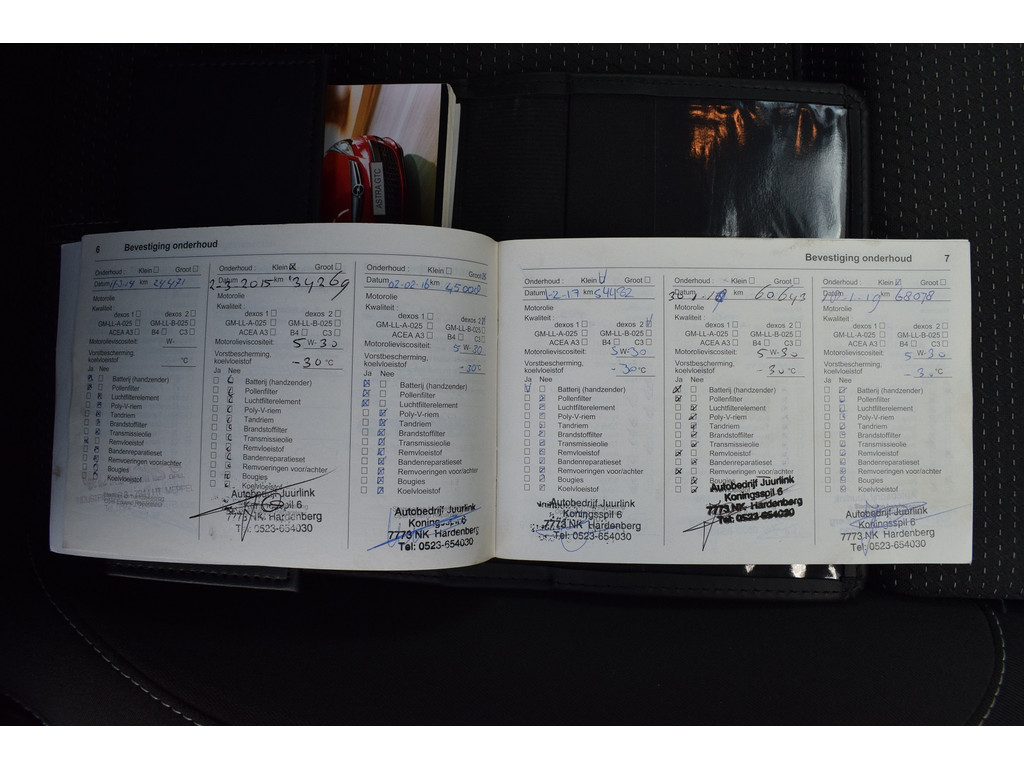 ASTRA GTC
6 Bevestiging onderhoud
Onderhoud : Klein Groot
Datum km 24471
Motorolie
Kwaliteit :
dexos 1 dexos 2
GM-LL-A-025 GM-LL-B-025
ACEA A3 B4 C3
Motorolieviscositeit: W-
Vorstbescherming,
koelvloeistof °C
Ja Nee
Batterij (handzender)
Pollenfilter
Luchtfilterelement
Poly-V-riem
Tandriem
Brandstoffilter
Transmissieolie
Remvloeistof
Bandenreparatieset
Remvoeringen voor/achter
Bougies
Koelvloeistof
Onderhoud : Klein Groot
Datum 2-3-2015 km 34269
Motorolie
Kwaliteit :
dexos 1 dexos 2
GM-LL-A-025 GM-LL-B-025
ACEA A3 B4 C3
Motorolieviscositeit: 5 W-30
Vorstbescherming,
koelvloeistof -30 °C
Ja Nee
Batterij (handzender)
Pollenfilter
Luchtfilterelement
Poly-V-riem
Tandriem
Brandstoffilter
Transmissieolie
Remvloeistof
Bandenreparatieset
Remvoeringen voor/achter
Bougies
Koelvloeistof
Autobedrijf Juurlink
Koningsspil 6
7773 NK Hardenberg
Tel: 0523-654030
Onderhoud : Klein Groot
Datum 02-02-16 km 45008
Motorolie
Kwaliteit :
dexos 1 dexos 2
GM-LL-A-025 GM-LL-B-025
ACEA A3 B4 C3
Motorolieviscositeit: 5 W-30
Vorstbescherming,
koelvloeistof -30°C
Ja Nee
Batterij (handzender)
Pollenfilter
Luchtfilterelement
Poly-V-riem
Tandriem
Brandstoffilter
Transmissieolie
Remvloeistof
Bandenreparatieset
Remvoeringen voor/achter
Bougies
Koelvloeistof
Autobedrijf Juurlink
Koningsspil 6
7773 NK Hardenberg
Tel: 0523-654030
Bevestiging onderhoud 7
Onderhoud : Klein Groot
Datum 1-2-17 km 54482
Motorolie
Kwaliteit :
dexos 1 dexos 2
GM-LL-A-025 GM-LL-B-025
ACEA A3 B4 C3
Motorolieviscositeit: 5 W-30
Vorstbescherming,
koelvloeistof -30°C
Ja Nee
Batterij (handzender)
Pollenfilter
Luchtfilterelement
Poly-V-riem
Tandriem
Brandstoffilter
Transmissieolie
Remvloeistof
Bandenreparatieset
Remvoeringen voor/achter
Bougies
Koelvloeistof
Autobedrijf Juurlink
Koningsspil 6
7773 NK Hardenberg
Tel: 0523-654030
Onderhoud : Klein Groot
Datum 30-1-18 km 60643
Motorolie
Kwaliteit :
dexos 1 dexos 2
GM-LL-A-025 GM-LL-B-025
ACEA A3 B4 C3
Motorolieviscositeit: 5 W-30
Vorstbescherming,
koelvloeistof -30°C
Ja Nee
Batterij (handzender)
Pollenfilter
Luchtfilterelement
Poly-V-riem
Tandriem
Brandstoffilter
Transmissieolie
Remvloeistof
Bandenreparatieset
Remvoeringen voor/achter
Bougies
Koelvloeistof
Autobedrijf Juurlink
Koningsspil 6
7773 NK Hardenberg
Tel: 0523-654030
Onderhoud : Klein Groot
Datum km 68078
Motorolie
Kwaliteit :
dexos 1 dexos 2
GM-LL-A-025 GM-LL-B-025
ACEA A3 B4 C3
Motorolieviscositeit: 5 W-30
Vorstbescherming,
koelvloeistof -30°C
Ja Nee
Batterij (handzender)
Pollenfilter
Luchtfilterelement
Poly-V-riem
Tandriem
Brandstoffilter
Transmissieolie
Remvloeistof
Bandenreparatieset
Remvoeringen voor/achter
Bougies
Koelvloeistof
Autobedrijf Juurlink
Koningsspil 6
7773 NK Hardenberg
Tel: 0523-654030